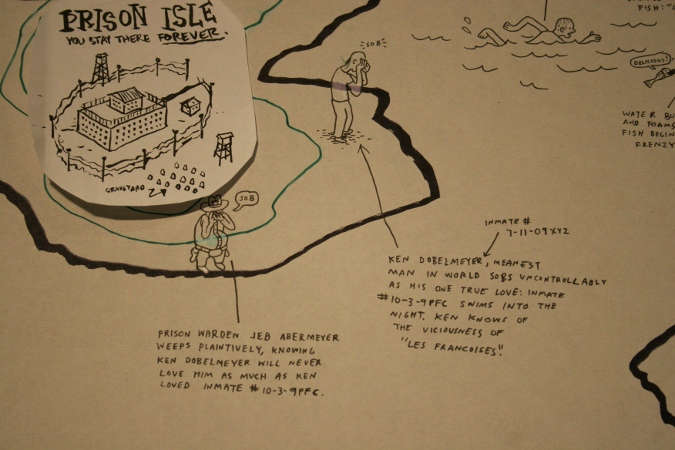 PRISON ISLE
YOU STAY THERE FOREVER.
GRAVEYARD
SOB
SOB
FISH: "
DELICIOUS!
WATER BU
AND FOAMS
FISH BEGIN
FRENZY
INMATE #
7-11-09XYZ
KEN DOBELMEYER, MEANEST
MAN IN WORLD SOBS UNCONTROLLABLY
AS HIS ONE TRUE LOVE: INMATE
#10-3-9PFC SWIMS INTO THE
NIGHT. KEN KNOWS OF
THE VICIOUSNESS OF
"LES FRANCOISES."
PRISON WARDEN JEB ABERMEYER
WEEPS PLAINTIVELY, KNOWING
KEN DOBELMEYER WILL NEVER
LOVE HIM AS MUCH AS KEN
LOVED INMATE #10-3-9PFC.